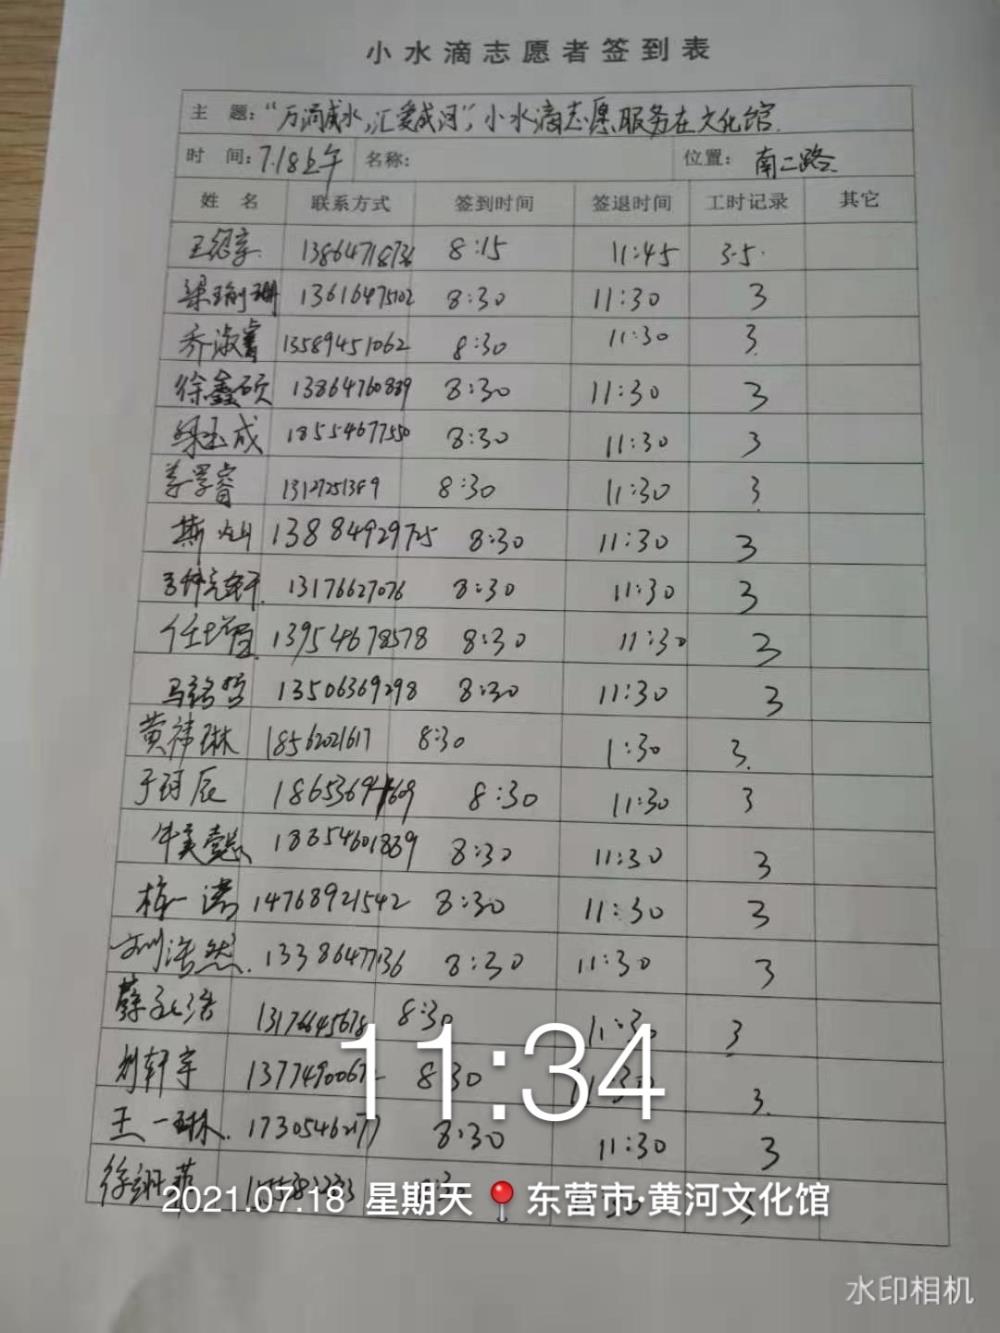 小水滴志愿者签到表
主 题: "万滴成水,汇爱成河",小水滴志愿服务在文化馆
时 间: 7.18上午 名称: 位置: 南二路
姓 名 联系方式 签到时间 签退时间 工时记录 其它
13864718736 8:15 11:45 3.5
梁瑜珊 13616475102 8:30 11:30 3
乔淑睿 13589451062 8:30 11:30 3
徐鑫硕 13864760839 8:30 11:30 3
成 18554677550 8:30 11:30 3
8:30 11:30 3
13884929725 8:30 11:30 3
13176627076 8:30 11:30 3
13954678578 8:30 11:30 3
马铭哲 13506369298 8:30 11:30 3
黄祎琳 18562021617 8:30 1:30 3
于珂辰 8:30 11:30 3
牛美懿 18354601839 8:30 11:30 3
14768921542 8:30 11:30 3
刘浩然 8:30 11:30 3
薛 浩 13176645678 8:30 11:30 3
刘轩宇 8:30 11:30 3
王一琳 17305462177 8:30 11:30 3
徐 菲
11:34
2021.07.18 星期天 东营市·黄河文化馆
水印相机